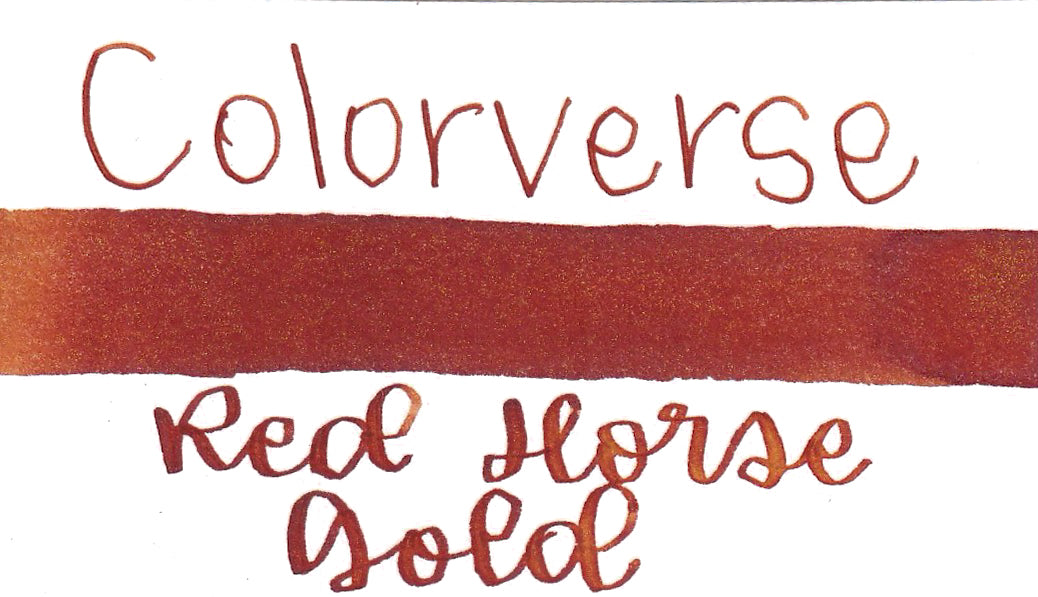 Colorverse
Red Horse
Gold